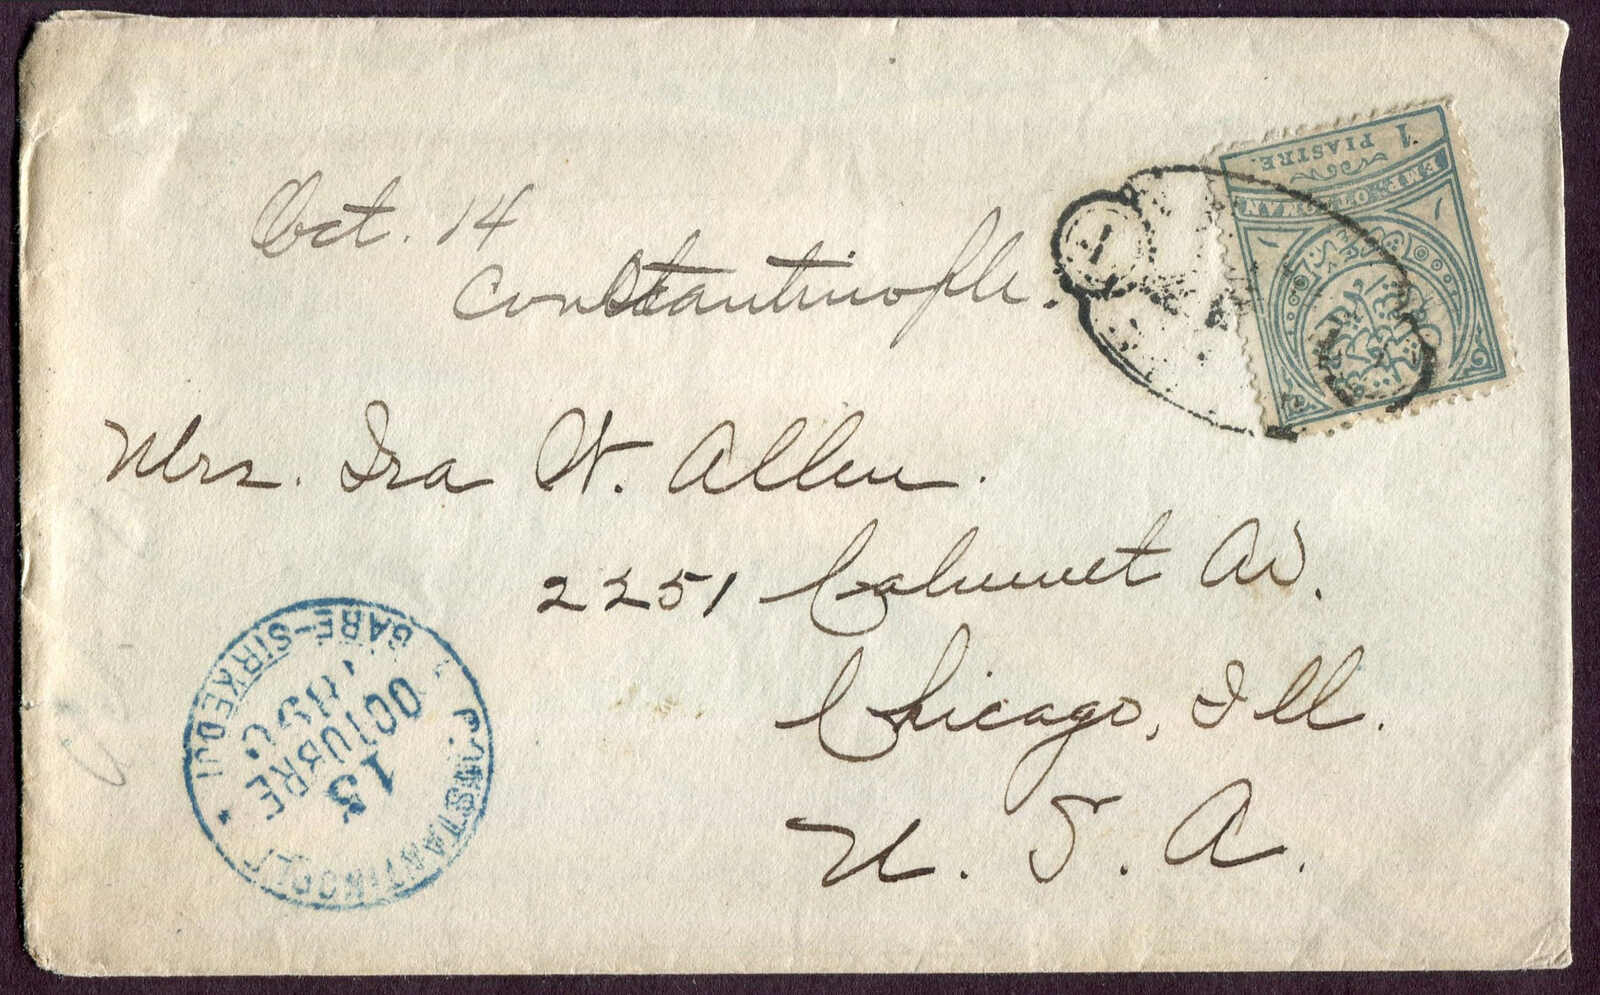 Oct. 14
Constantinople.
1
PIASTRE.
EMP. OTTOMAN
Mrs. Ira W. Allen.
2251 Calumet Av.
Chicago, Ill.
U. S. A.
CONSTANTINOPLE
GARE-SIRKEDJI
15
OCTUBRE